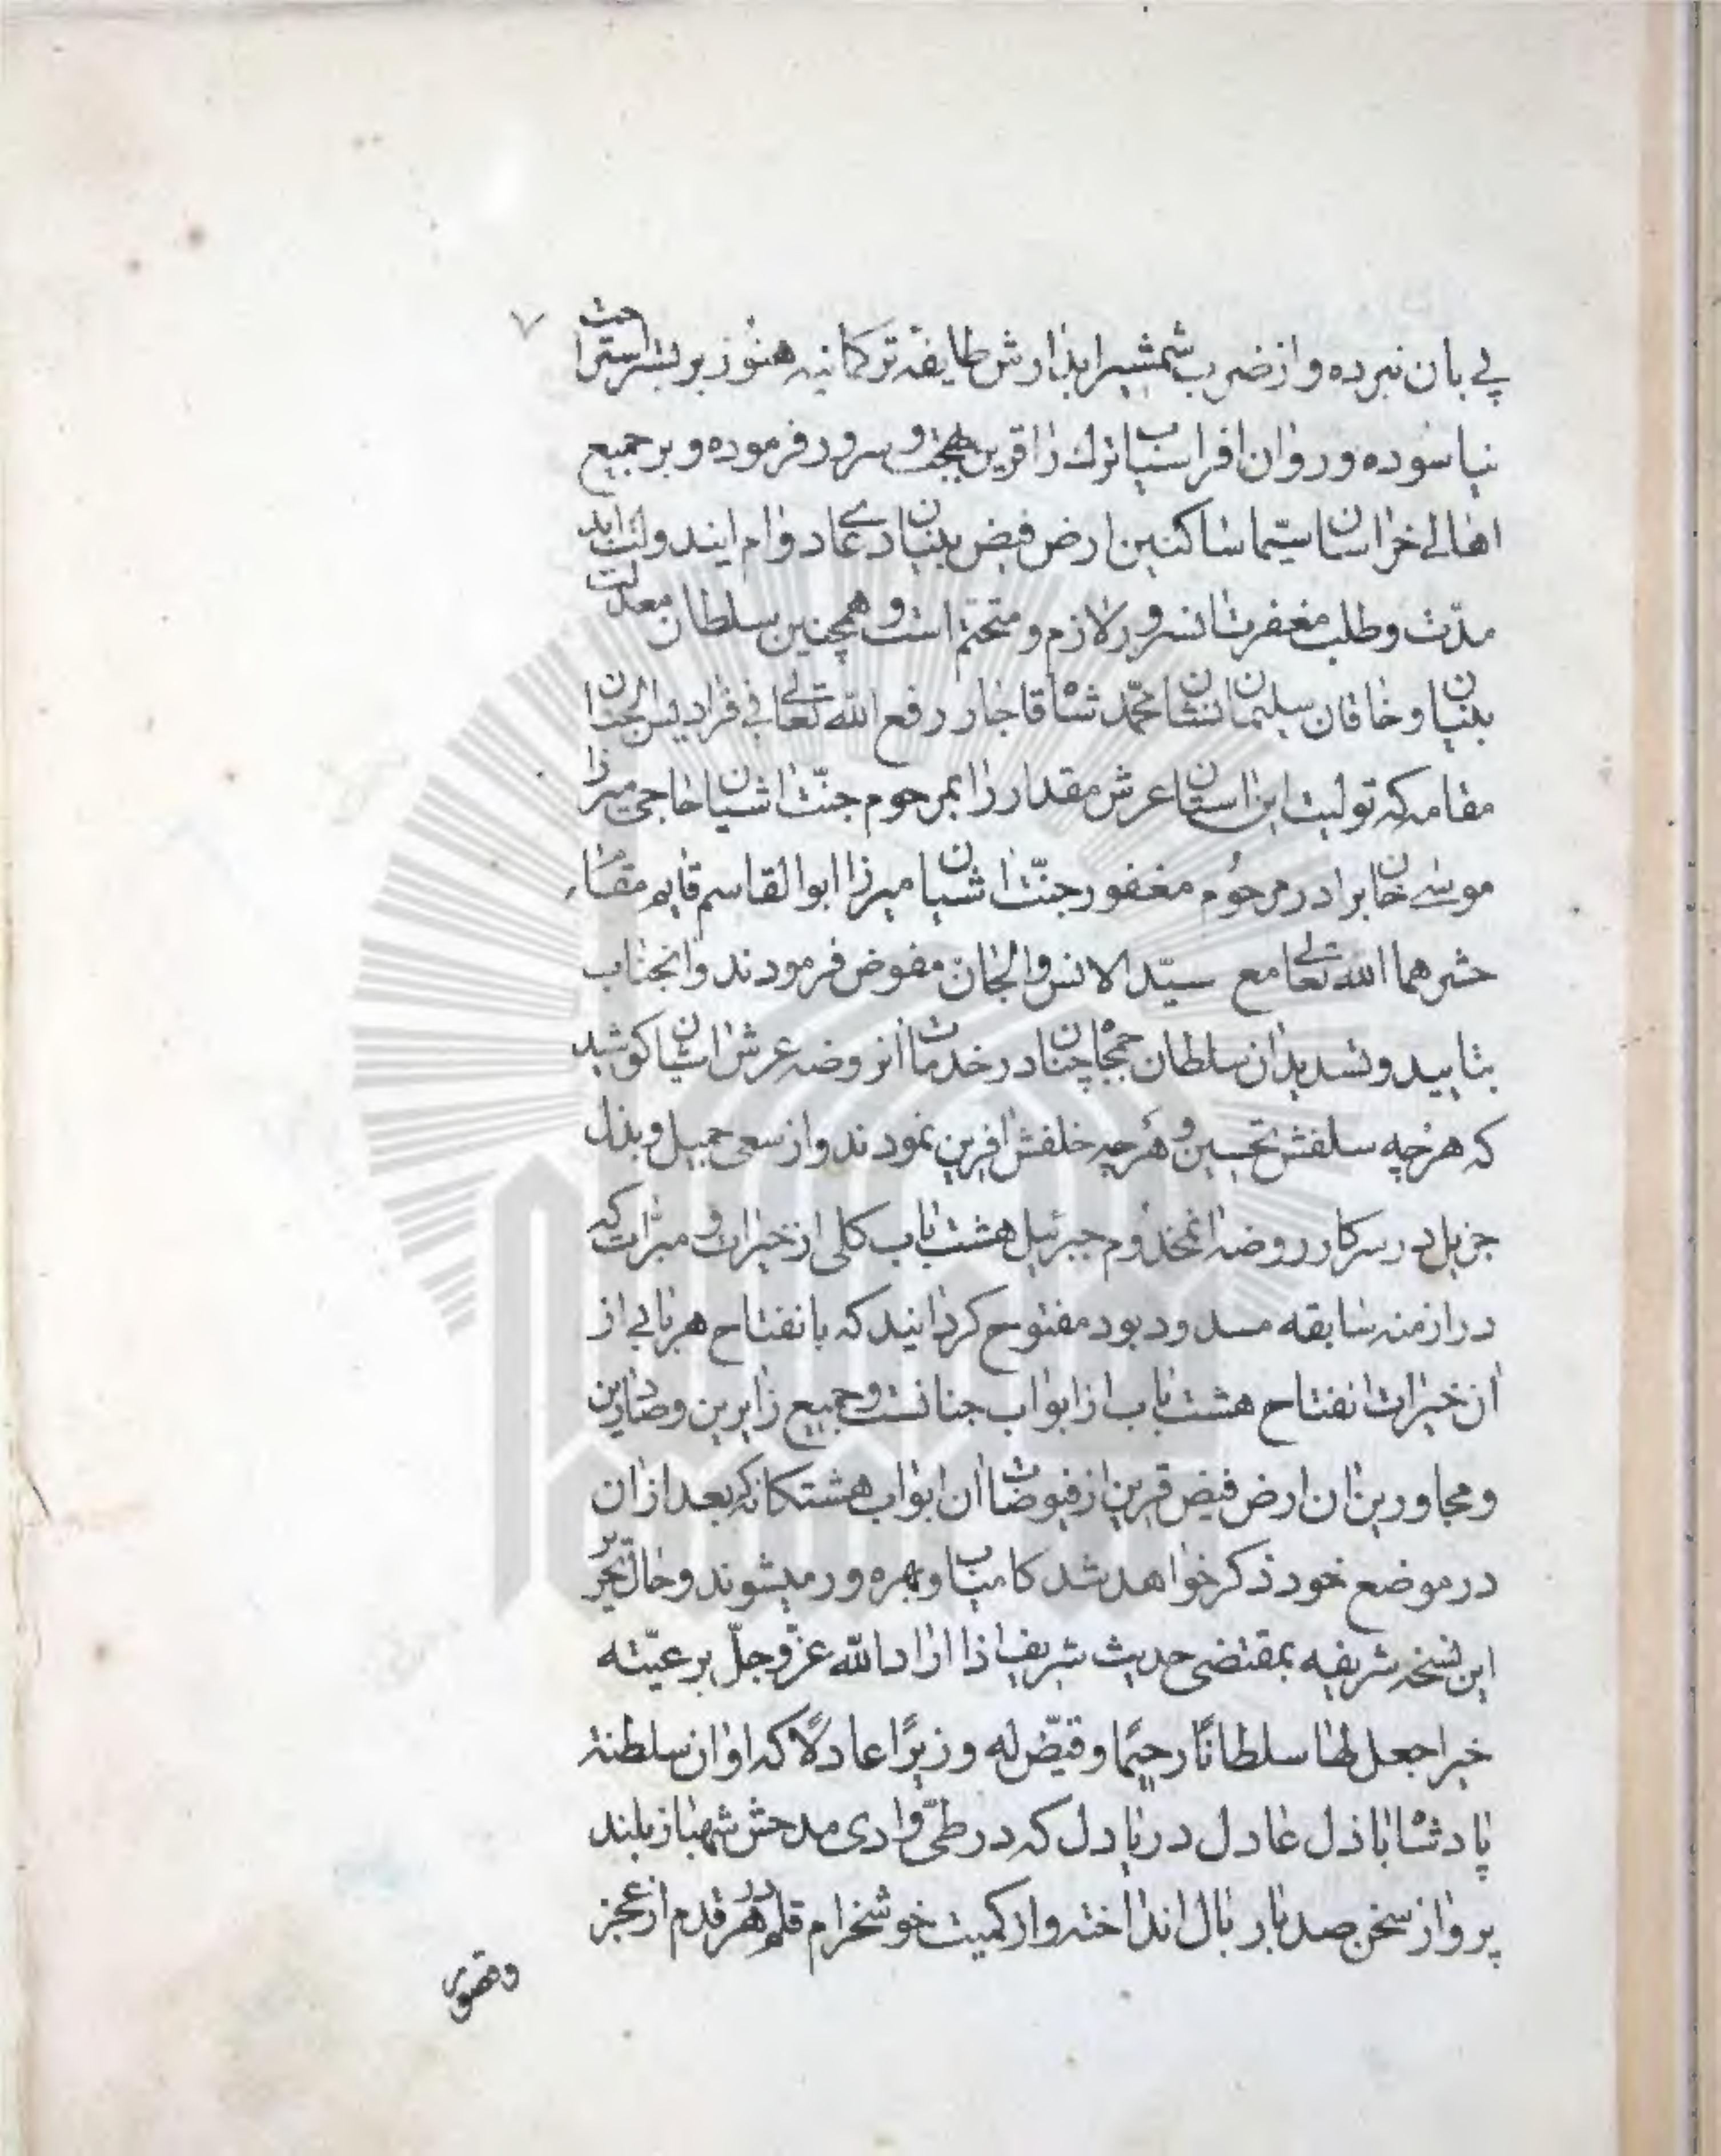 ۷
پی بان نبرده و از ضرب شمشیر ابدارش طایفه ترکمانیه هنوز بر بستر استراحت
نیاسوده و روان افراسیاب ترک را قرین بهجت و سرور فرموده و بر جمیع
اهالی خراسان سیما ساکنین ارض فیض بنیان دعای دوام ایندولت ابد
مدت و طلب مغفرت انسرور لازم و متحتم است و همچنین سلطان معدلت
بنیان و خاقان سلیمان نشان محمد شاه قاجار رفع الله تعالی فی فرادیس الجنان
مقامه که تولیت این استان عرش مقدار را بمرحوم جنت اشیان حاجی میرزا
موسی خان برادر مرحوم مغفور جنت اشیان میرزا ابوالقاسم قایم مقام
حشرهما الله تعالی مع سید الانس والجان مفوض فرمودند و انجناب
بتایید و تسدید ان سلطان جمجاه چنان در خدمات انروضه عرش اشیان کوشید
که هرچه سلفش تحسین و هرچه خلفش افرین نمودند و از سعی جمیل و بذل
جزیل در سرکار روضه انمخدوم جبرئیل هشت باب کلی از خیرات و مبرات که
در ازمنه سابقه مسدود بود مفتوح کردانیند که بانفتاح هر بابی از
ان خیرات انفتاح هشت باب از ابواب جنانست و جمیع زایرین و صادرین
و مجاورین ان ارض فیض قرین از فیوضات ان ابواب هشتکانه که بعد از ان
در موضع خود ذکر خواهد شد کامیاب و بهره ور میشوند و حال تحریر
این نسخه شریفه بمقتضی حدیث شریف اذا اراد الله عز و جل برعیته
خیرا جعل لها سلطانًا رحیمًا و قیّض له وزیرًا عادلًا که اوان سلطنة
پادشاه باذل عادل دریادل که در طیّ وادی مدحش شهباز بلند
پرواز سخن صد بار بال انداخته و از کمیت خوشخرام قلم در هر قدم از عجز
و قصور